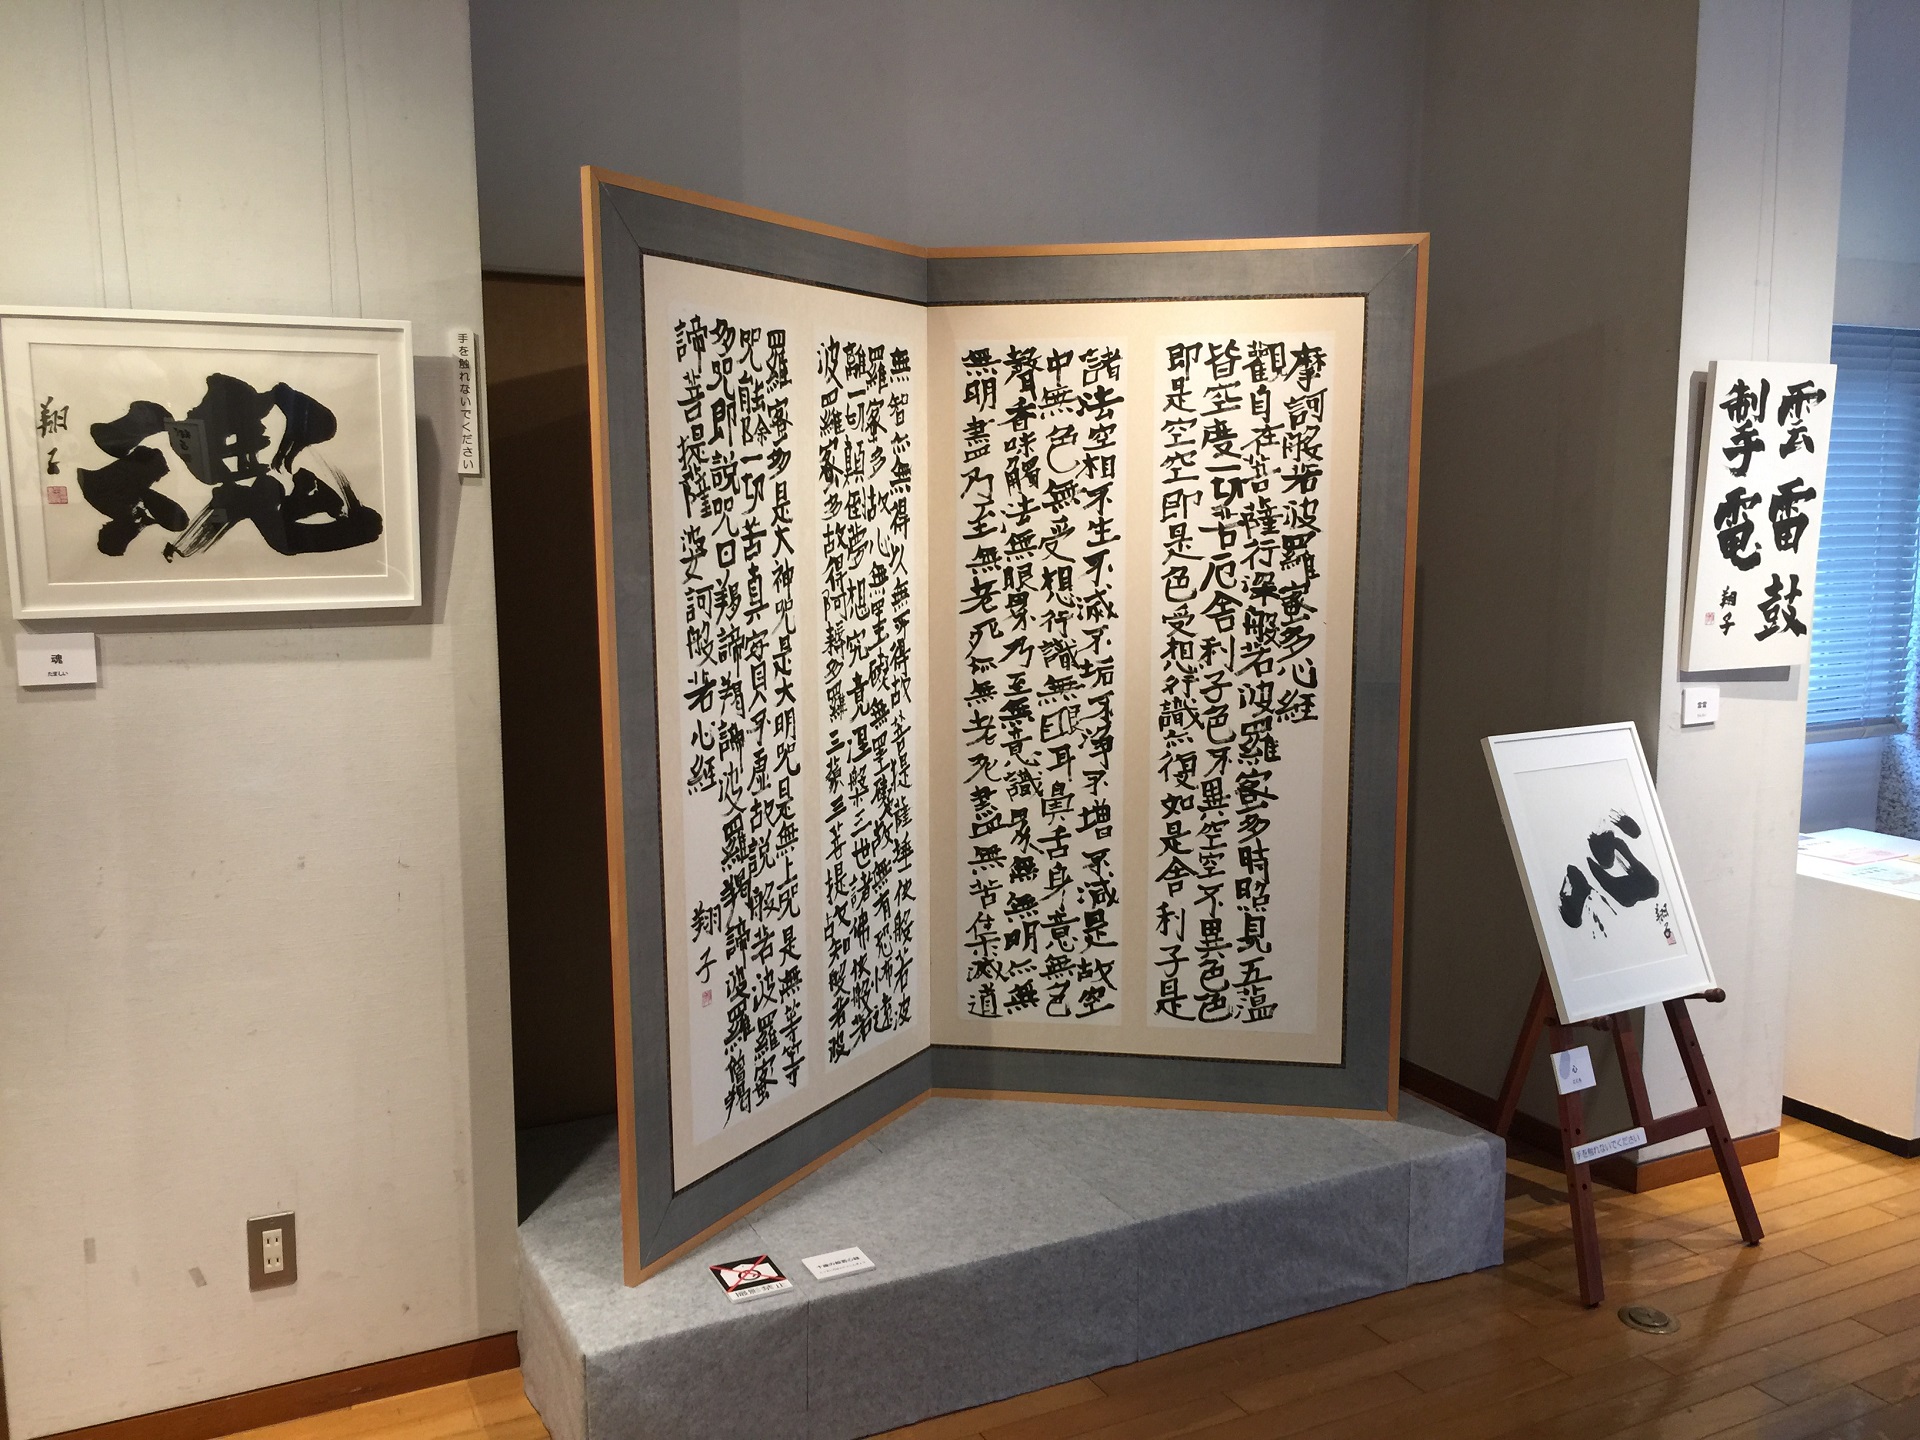 魂
翔子
魂
たましい
手を触れないでください
摩訶般若波羅蜜多心経
觀自在菩薩行深般若波羅蜜多時照見五蘊
皆空度一切苦厄舎利子色不異空空不異色色
即是空空即是色受想行識亦復如是舎利子是
諸法空相不生不滅不垢不浄不増不減是故空
中無色無受想行識無眼耳鼻舌身意無色
聲香味觸法無眼界乃至無意識界無無明亦無
無明盡乃至無老死亦無老死盡無苦集滅道
無智亦無得以無所得故菩提薩埵依般若波
羅蜜多故心無罣礙無罣礙故無有恐怖遠
離一切顛倒夢想究竟涅槃三世諸佛依般若
波羅蜜多故得阿耨多羅三藐三菩提故知般若波
羅蜜多是大神咒是大明咒是無上咒是無等等
咒能除一切苦真実不虚故説般若波羅蜜
多咒即説咒曰羯諦羯諦波羅羯諦波羅僧羯
諦菩提薩婆訶般若心経
翔子
撮影禁止
雲雷鼓
制手電
翔子
心
翔子
心
手を触れないでください